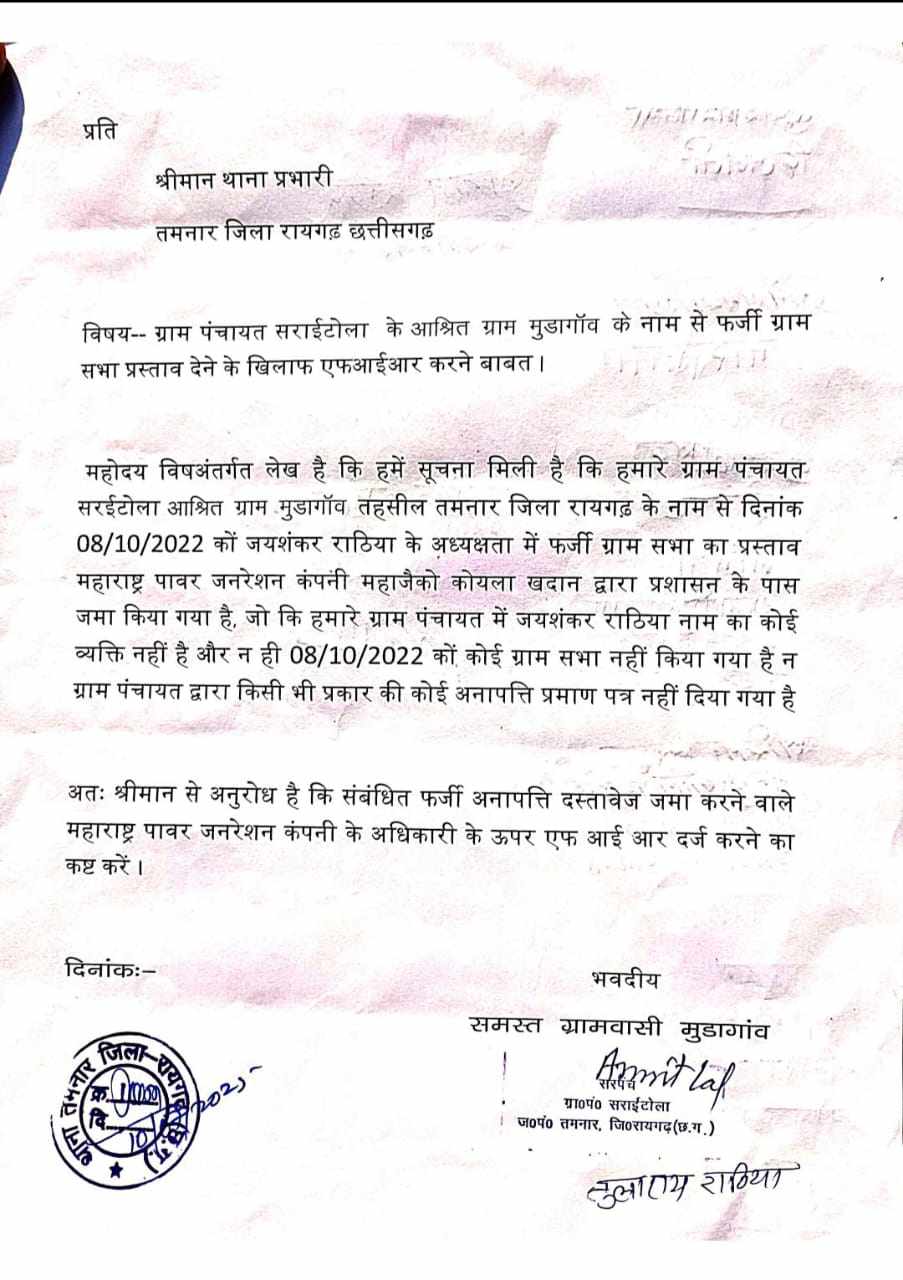 प्रति
श्रीमान थाना प्रभारी
तमनार जिला रायगढ़ छत्तीसगढ़
विषय-- ग्राम पंचायत सराईटोला के आश्रित ग्राम मुडागॉव के नाम से फर्जी ग्राम
सभा प्रस्ताव देने के खिलाफ एफआईआर करने बाबत।
महोदय विषअंतर्गत लेख है कि हमें सूचना मिली है कि हमारे ग्राम पंचायत
सरईटोला आश्रित ग्राम मुडागॉव तहसील तमनार जिला रायगढ़ के नाम से दिनांक
08/10/2022 कों जयशंकर राठिया के अध्यक्षता में फर्जी ग्राम सभा का प्रस्ताव
महाराष्ट्र पावर जनरेशन कंपनी महाजैको कोयला खदान द्वारा प्रशासन के पास
जमा किया गया है, जो कि हमारे ग्राम पंचायत में जयशंकर राठिया नाम का कोई
व्यक्ति नहीं है और न ही 08/10/2022 कों कोई ग्राम सभा नहीं किया गया है न
ग्राम पंचायत द्वारा किसी भी प्रकार की कोई अनापत्ति प्रमाण पत्र नहीं दिया गया है
अतः श्रीमान से अनुरोध है कि संबंधित फर्जी अनापत्ति दस्तावेज जमा करने वाले
महाराष्ट्र पावर जनरेशन कंपनी के अधिकारी के ऊपर एफ आई आर दर्ज करने का
कष्ट करें।
दिनांकः–
भवदीय
समस्त ग्रामवासी मुडागांव
Amrit lal
सरपंच
ग्रा०पं० सराईटोला
ज०पं० तमनार, जि०रायगढ़(छ.ग.)
तुलाराम राठिया
थाना तमनार जिला-रायगढ़ (छ.ग.)
क्र.
दि.
10
2025